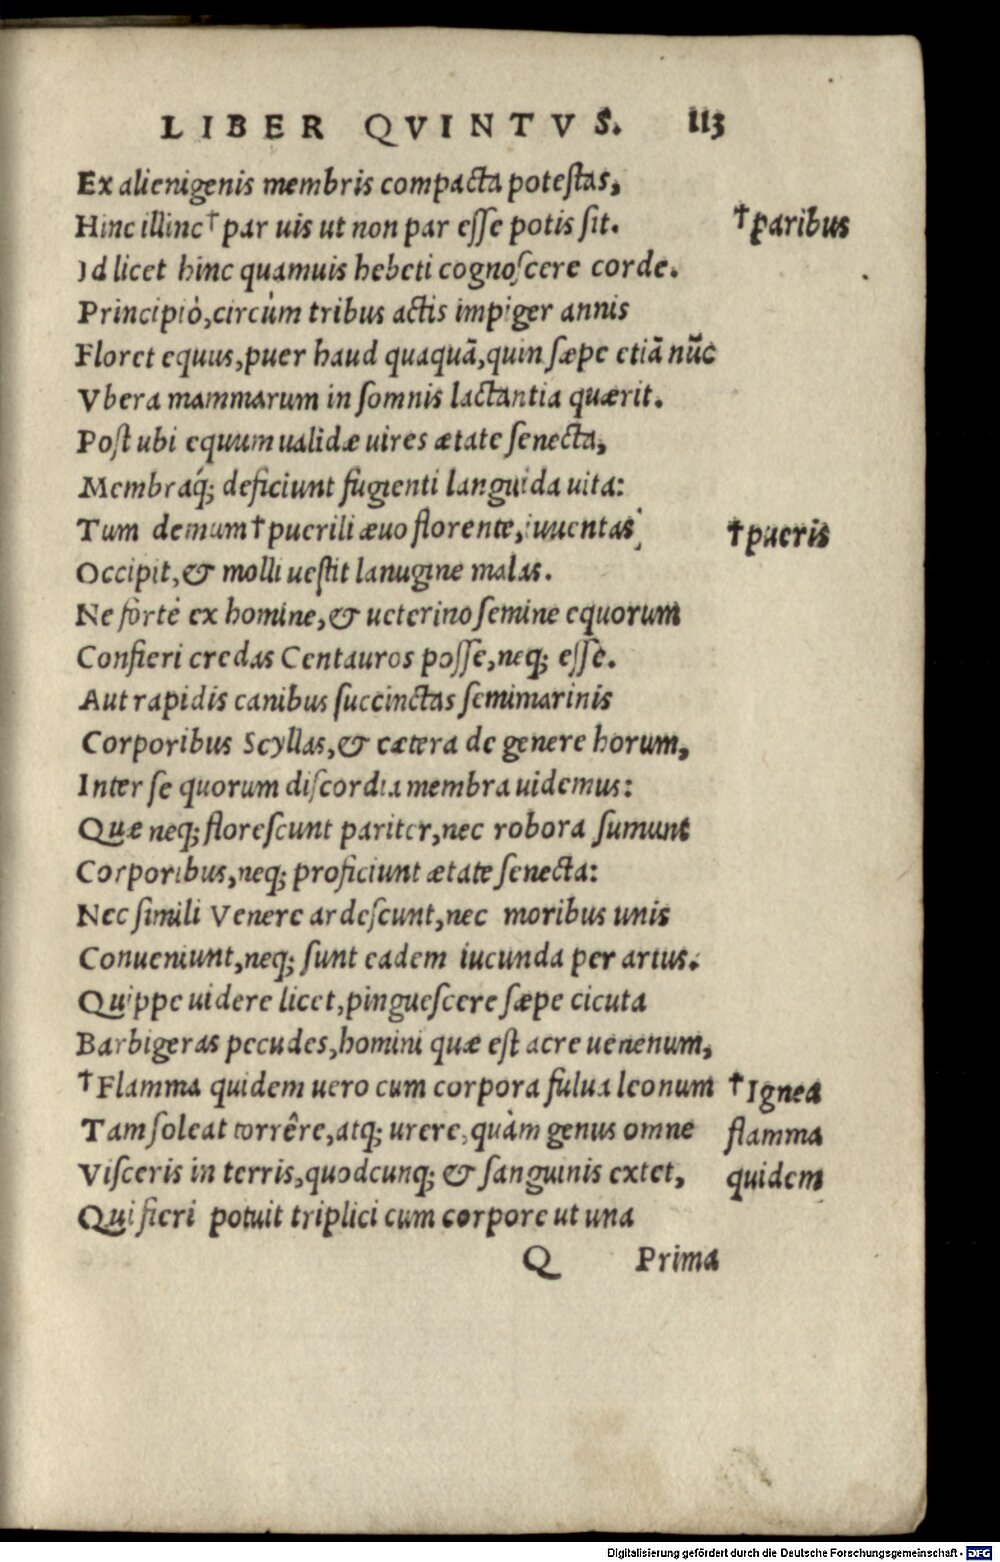 LIBER QVINTVS. 113
Ex alienigenis membris compacta potestas,
Hinc illinc † par uis ut non par esse potis sit. † paribus
Id licet hinc quamuis hebeti cognoscere corde.
Principiò, circùm tribus actis impiger annis
Floret equus, puer haud quaquā, quin sæpe etiā nūc
Vbera mammarum in somnis lactantia quærit.
Post ubi equum ualidæ uires ætate senecta,
Membraq́; deficiunt fugienti languida uita:
Tum demum † puerili æuo florente, iuuentas † pueris
Occipit, & molli uestit lanugine malas.
Ne fortè ex homine, & ueterino semine equorum
Confieri credas Centauros posse, neq; esse.
Aut rapidis canibus succinctas semimarinis
Corporibus Scyllas, & cætera de genere horum,
Inter se quorum discordia membra uidemus:
Quæ neq; florescunt pariter, nec robora sumunt
Corporibus, neq; proficiunt ætate senecta:
Nec simili Venere ardescunt, nec moribus unis
Conueniunt, neq; sunt eadem iucunda per artus.
Quippe uidere licet, pinguescere sæpe cicuta
Barbigeras pecudes, homini quæ est acre uenenum,
† Flamma quidem uero cum corpora fulua leonum † Ignea
Tam soleat torrêre, atq; urere, quàm genus omne flamma
Visceris in terris, quodcunq; & sanguinis extet, quidem
Qui fieri potuit triplici cum corpore ut una
Q Prima
Digitalisierung gefördert durch die Deutsche Forschungsgemeinschaft - DFG